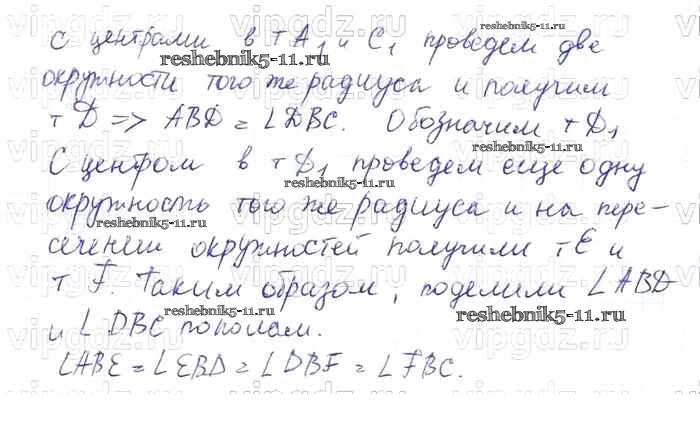 С центрами в т A₁ и C₁ проведем две
reshebnik5-11.ru
reshebnik5-11.ru
окружности того же радиуса и получим
т D => ABD = ∠DBC. Обозначим т D₁
reshebnik5-11.ru
С центром в т D₁ проведем еще одну
reshebnik5-11.ru
окружность того же радиуса и на пере-
reshebnik5-11.ru
сечении окружностей получили т E и
т F. Таким образом, поделили ∠ABD
и ∠DBC пополам.
reshebnik5-11.ru
reshebnik5-11.ru
∠ABE = ∠EBD = ∠DBF = ∠FBC.
vipgdz.ru vipgdz.ru vipgdz.ru